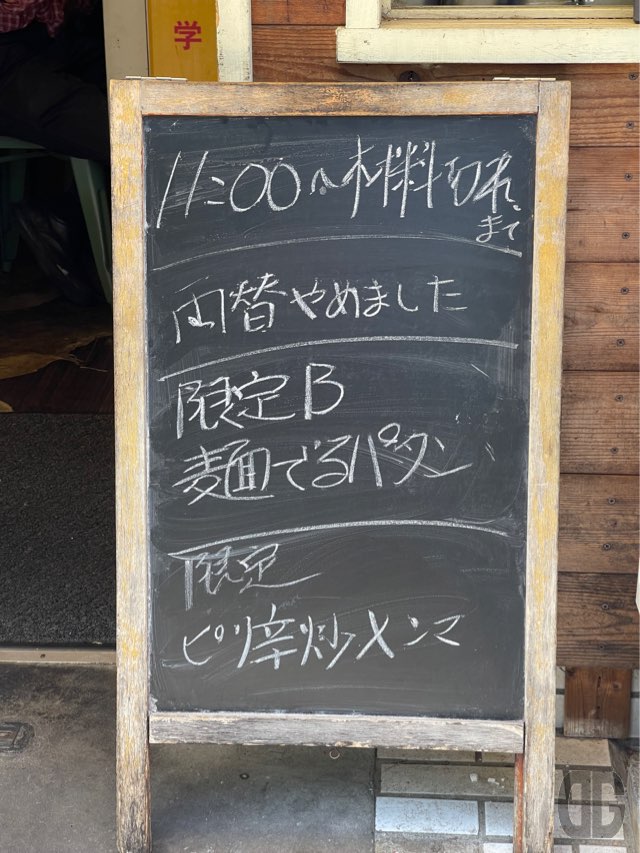 学
11:00〜材料切れ
まで
両替やめました
限定B
麺でるパタン
限定
ピリ辛炒メンマ